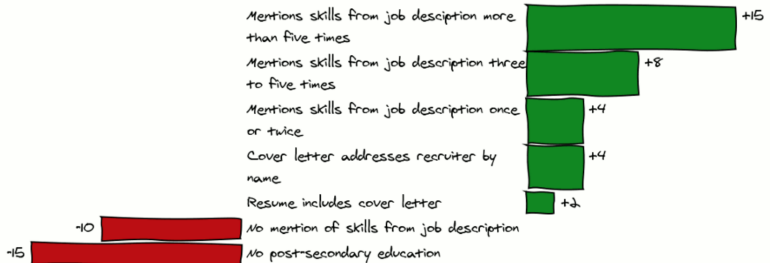 Mentions skills from job desciption more +15
than five times
Mentions skills from job description three +8
to five times
Mentions skills from job description once +4
or twice
Cover letter addresses recruiter by +4
name
Resume includes cover letter +2
-10 No mention of skills from job description
-15 No post-secondary education